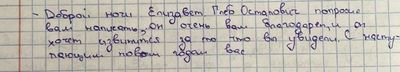 - Доброй ночи Елизавет Глеб Остапович попросил
вам написать, он очень вам благодарен, и он
хочет извинится за то что вы увидели. С насту-
пающим новым годом вас